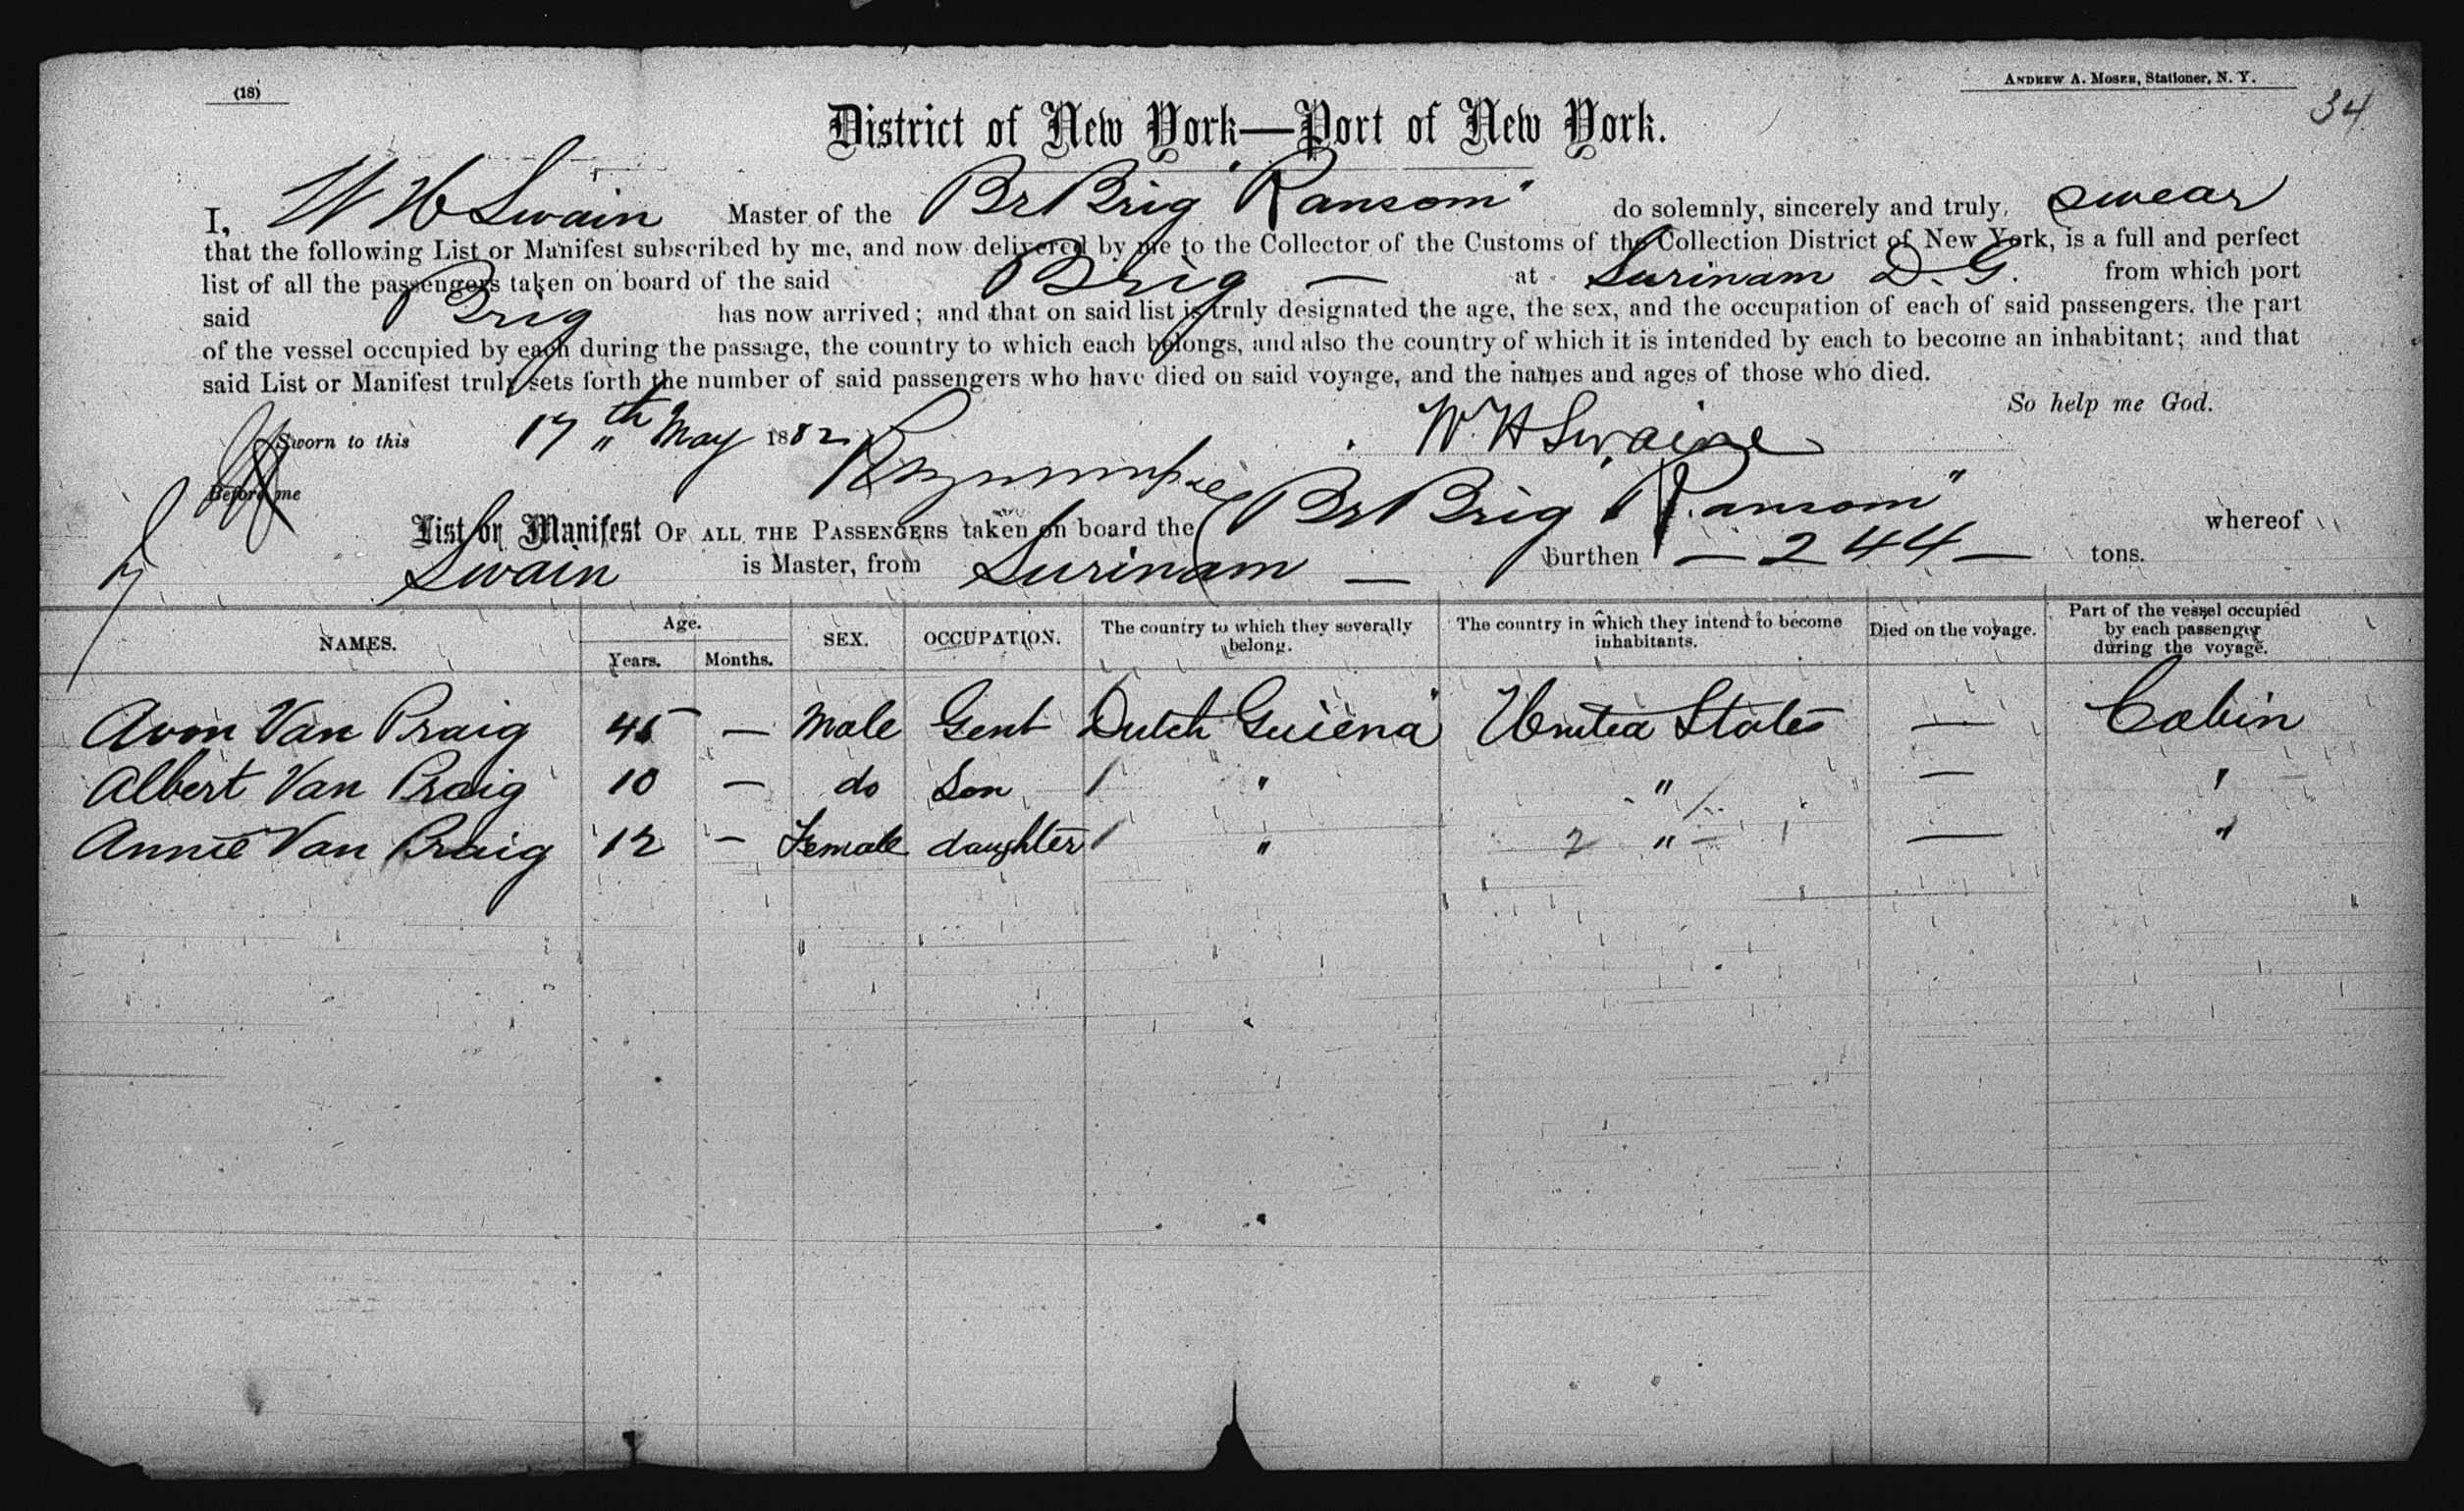 (18)
ANDREW A. MOSER, Stationer, N. Y.
34
District of New York—Port of New York.
I, W H Swain Master of the Br Brig "Ransom" do solemnly, sincerely and truly, swear
that the following List or Manifest subscribed by me, and now delivered by me to the Collector of the Customs of the Collection District of New York, is a full and perfect
list of all the passengers taken on board of the said Brig — at Surinam D. G. from which port
said Brig has now arrived; and that on said list is truly designated the age, the sex, and the occupation of each of said passengers, the part
of the vessel occupied by each during the passage, the country to which each belongs, and also the country of which it is intended by each to become an inhabitant; and that
said List or Manifest truly sets forth the number of said passengers who have died on said voyage, and the names and ages of those who died.
So help me God.
Sworn to this 17th May 1882 W. H Swaine
Before me
List or Manifest OF ALL THE PASSENGERS taken on board the Br Brig "Ransom" whereof
Swain is Master, from Surinam — burthen — 244 — tons.
NAMES. Age. Years. Months. SEX. OCCUPATION. The country to which they severally belong. The country in which they intend to become inhabitants. Died on the voyage. Part of the vessel occupied by each passenger during the voyage.
Avon Van Praig 45 — Male Gent Dutch Guiena United States — Cabin
Albert Van Praig 10 — do Son " " — "
Annie Van Praig 12 — Female daughter " 2 " — "